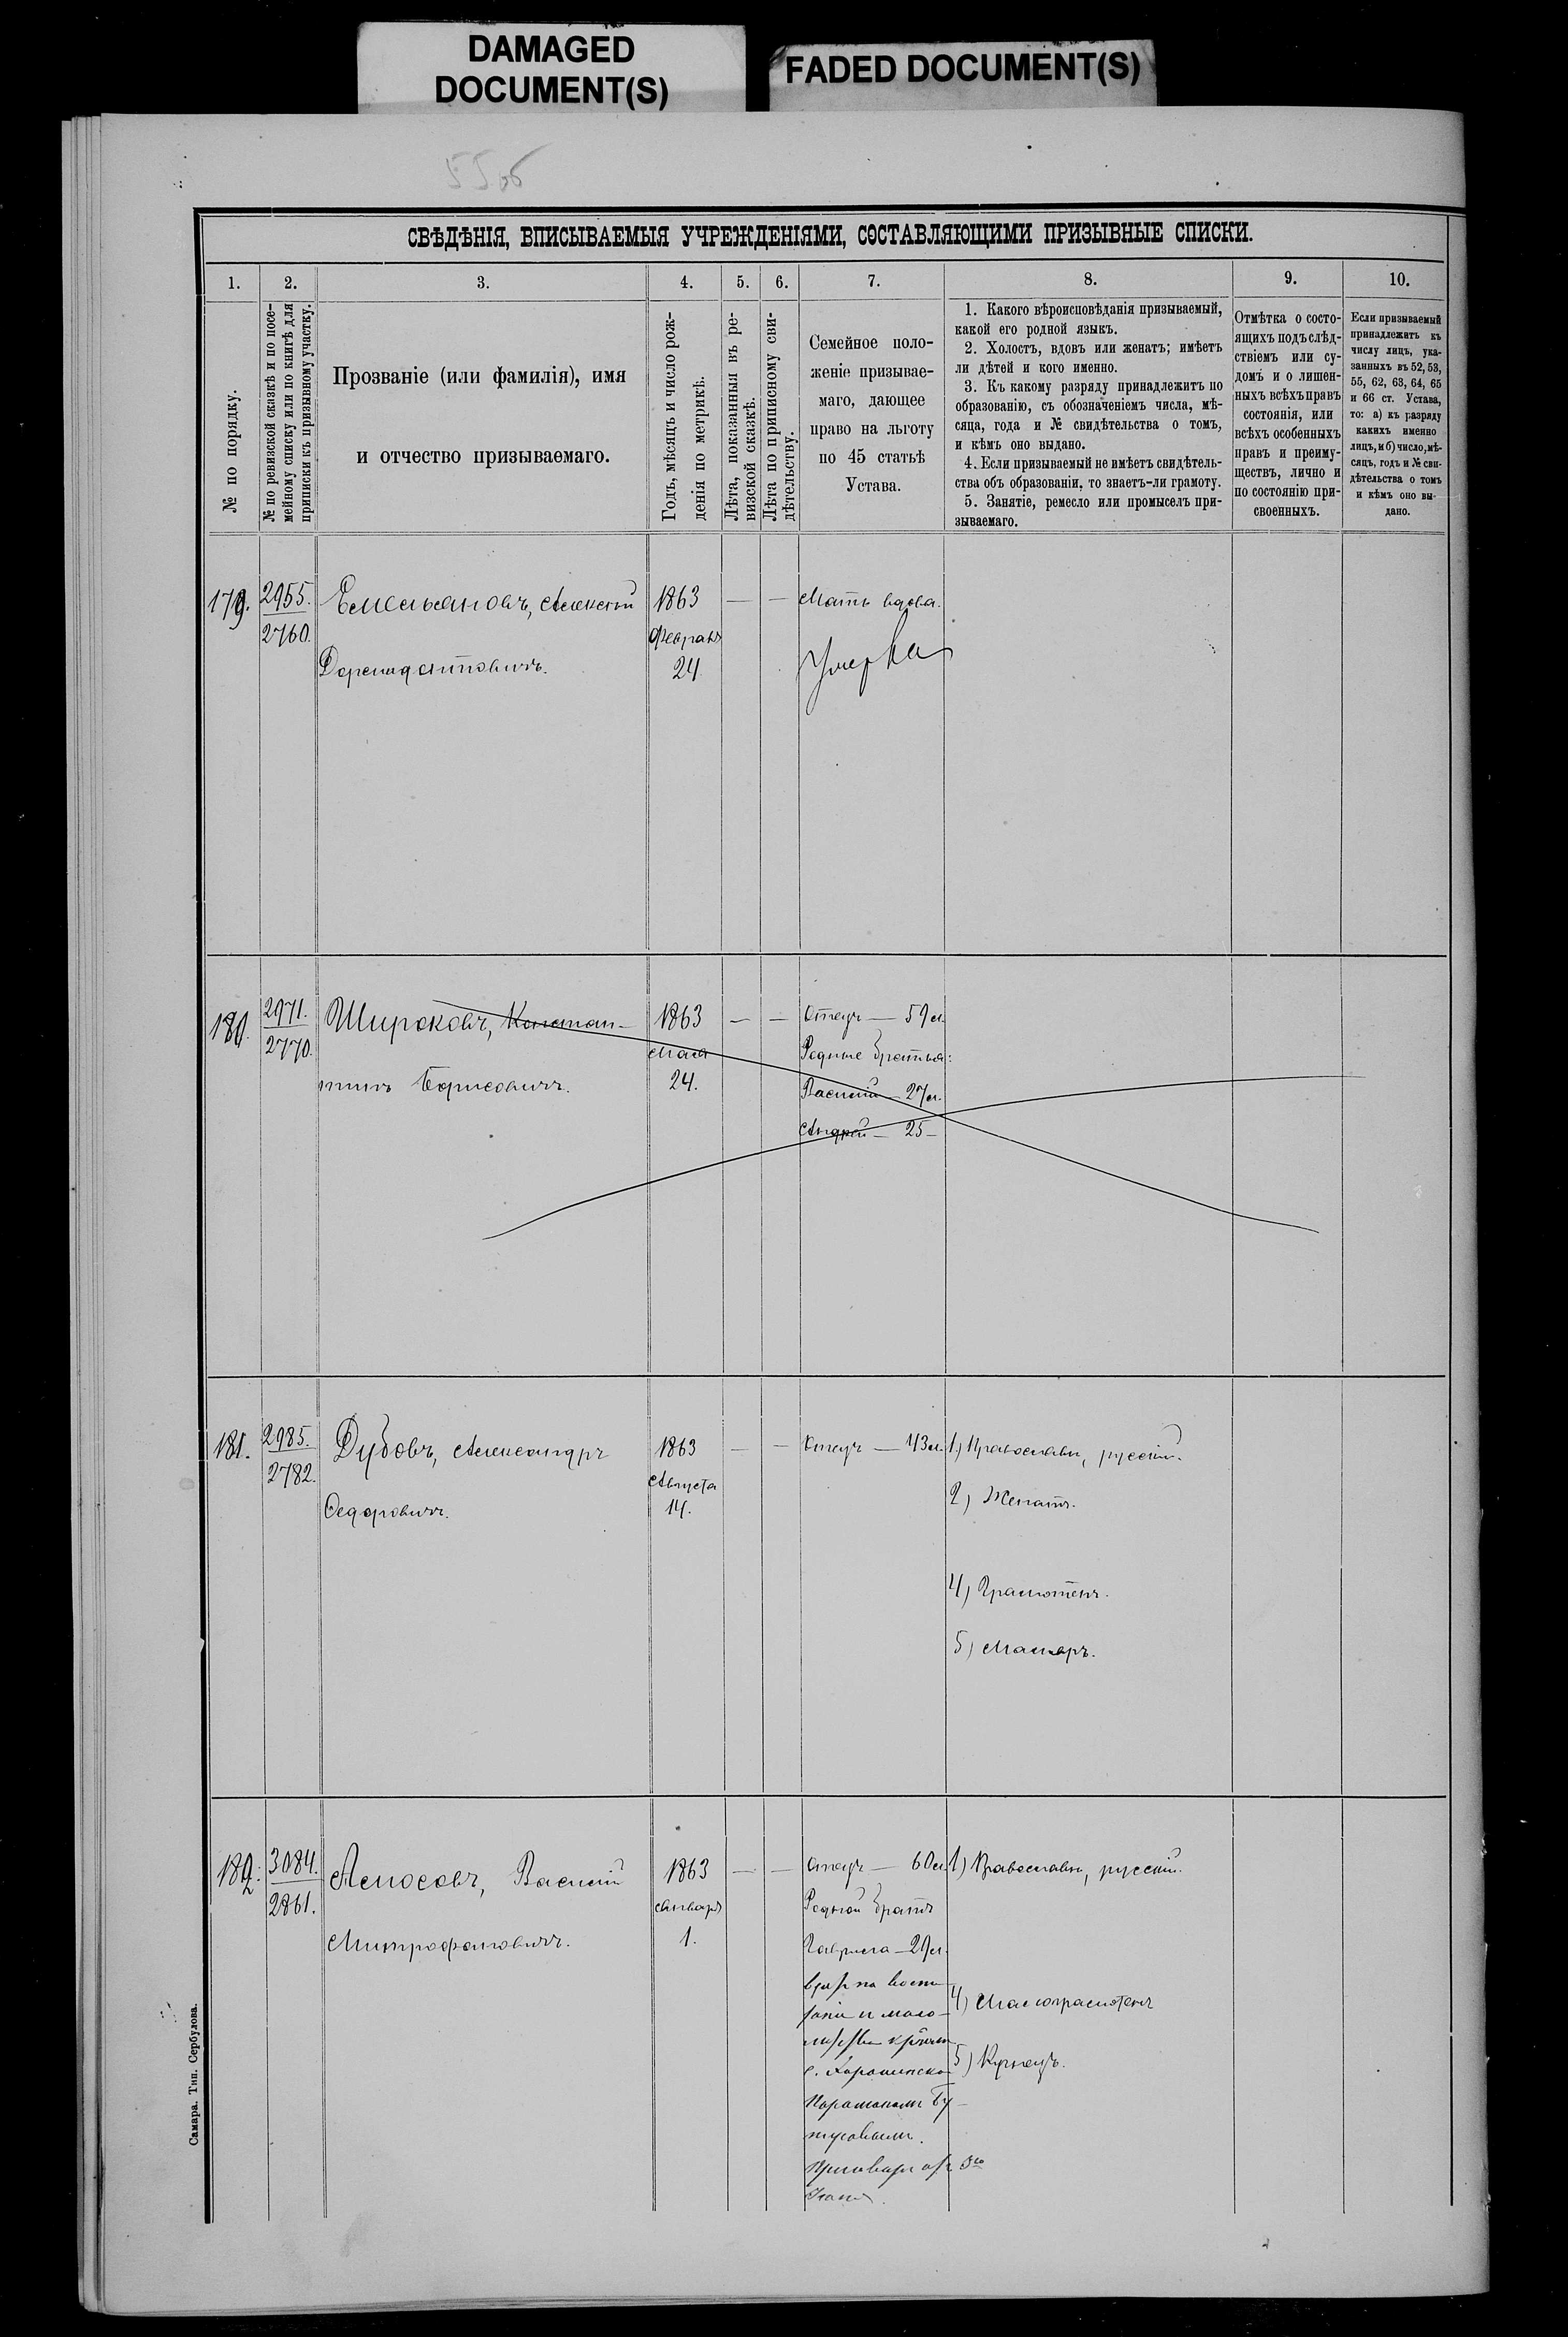 DAMAGED
DOCUMENT(S)
FADED DOCUMENT(S)
55 об
СВѢДѢНІЯ, ВПИСЫВАЕМЫЯ УЧРЕЖДЕНІЯМИ, СОСТАВЛЯЮЩИМИ ПРИЗЫВНЫЕ СПИСКИ.
1. 2. 3. 4. 5. 6. 7. 8. 9. 10.
№ по порядку.
№ по ревизской сказкѣ и по посе-
мейному списку или по книгѣ для
приписки къ призывному участку.
Прозваніе (или фамилія), имя
и отчество призываемаго.
Годъ, мѣсяцъ и число рож-
денія по метрикѣ.
Лѣта, показанныя въ ре-
визской сказкѣ.
Лѣта по приписному сви-
дѣтельству.
Семейное поло-
женіе призывае-
маго, дающее
право на льготу
по 45 статьѣ
Устава.
1. Какого вѣроисповѣданія призываемый,
какой его родной языкъ.
2. Холостъ, вдовъ или женатъ; имѣетъ
ли дѣтей и кого именно.
3. Къ какому разряду принадлежитъ по
образованію, съ обозначеніемъ числа, мѣ-
сяца, года и № свидѣтельства о томъ,
и кѣмъ оно выдано.
4. Если призываемый не имѣетъ свидѣтель-
ства объ образованіи, то знаетъ-ли грамоту.
5. Занятіе, ремесло или промыселъ при-
зываемаго.
Отмѣтка о состо-
ящихъ подъ слѣд-
ствіемъ или су-
домъ и о лишен-
ныхъ всѣхъ правъ
состоянія, или
всѣхъ особенныхъ
правъ и преиму-
ществъ, лично и
по состоянію при-
своенныхъ.
Если призываемый
принадлежитъ къ
числу лицъ, ука-
занныхъ въ 52, 53,
55, 62, 63, 64, 65
и 66 ст. Устава,
то: а) къ разряду
какихъ именно
лицъ, и б) число, мѣ-
сяцъ, годъ и № сви-
дѣтельства о томъ
и кѣмъ оно вы-
дано.
179. 2955. Емельяновъ, Алексѣй 1863 — — Мать вдова.
2760. Февраля
24
180. 2971. Широковъ, Констан- 1863 — — Отецъ — 59 л.
2770. Мая Родные братья:
тинъ Борисовичъ. 24. Василій — 27 л.
Андрей — 25 —
181. 2985. Дубовъ, Александръ 1863 — — Отецъ — 43 л. 1) Православн, русскій.
2782. Августа 2) Женатъ.
Ѳедоровичъ. 14.
4) Грамотенъ.
5) Маляръ.
182. 3084. Асмосовъ, Василій 1863 — — Отецъ — 60 л. 1) Православн, русскій.
2861. Января Родной братъ
Митрофановичъ. 1. Гаврила — 29 л.
4) Малограмотенъ
5) Кузнецъ.
Самара. Тип. Сербулова.